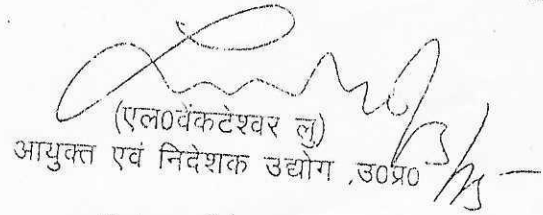 (एल0वेंकटेश्वर लु)
आयुक्त एवं निदेशक उद्योग ,उ0प्र0